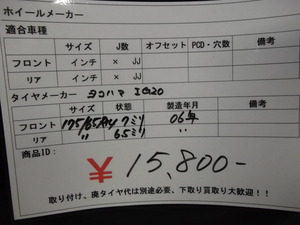 ホイールメーカー
適合車種
サイズ J数 オフセット PCD・穴数 備考
フロント インチ × JJ
リア インチ × JJ
タイヤメーカー ヨコハマ IG20
サイズ 状態 製造年月 備考
フロント 175/65R14 7ミリ 06年
リア 〃 6.5ミリ
商品ID:
¥15,800-
取り付け、廃タイヤ代は別途必要、下取り買取り大歓迎！！